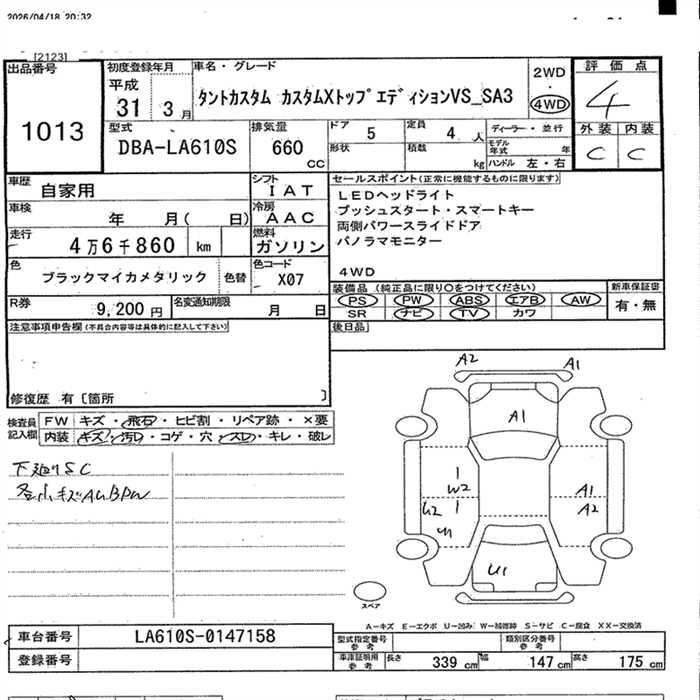 2026/04/18 20:32
[2123]
出品番号
1013
初度登録年月
平成
31 3月
車名・グレード
タントカスタム カスタムXトップエディションVS_SA3
2WD
・
4WD
評価点
4
外装 内装
C C
型式
DBA-LA610S
排気量
660
CC
ドア 5
定員 4 人
形状
積載 kg
ディーラー・並行
モデル年式 年
ハンドル 左・右
車歴
自家用
シフト
IAT
車検
年 月( 日)
冷房
AAC
走行
4万6千860 km
燃料
ガソリン
色
ブラックマイカメタリック
色替
色コード
X07
R券
9,200円
名変通知期限
月 日
セールスポイント(正常に機能するものに限ります)
LEDヘッドライト
プッシュスタート・スマートキー
両側パワースライドドア
パノラマモニター
4WD
装備品(純正品に限り○をつけてください)
PS PW ABS エアB AW
SR ナビ TV カワ
新車保証書
有・無
後日品
注意事項申告欄(不具合内容等は具体的に記入して下さい)
修復歴 有〔箇所 〕
検査員記入欄
FW キズ・飛石・ヒビ割・リペア跡・×要
内装 キズ・汚れ・コゲ・穴・スレ・キレ・破レ
下廻りSC
各小キズAUBPW
A2
A1
A1
W2
U2
A1
A2
U1
スペア
A-キズ E-エクボ U-凹み W-補修跡 S-サビ C-腐食 XX-交換済
車台番号
LA610S-0147158
登録番号
型式指定番号参考
類別区分番号参考
車庫証明用参考
長さ 339 cm
幅 147 cm
高さ 175 cm